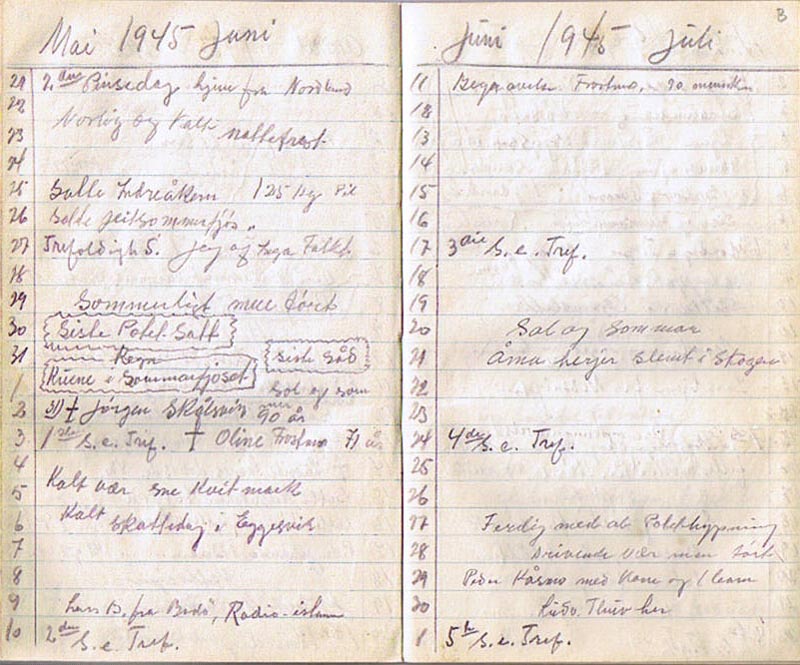 Mai 1945 Juni
21 2. den Pinsedag hjem fra Nordland
22
Vorlig og Kalt nattefrost
23
24
25 Satte Indreåkern 125 kg Pil
26 Satte geitsommerfjøs
27 Trefoldigh S. jeg og Inga Falkt
28
29 Sommerligt mere tørt
30 Siste Potet. Satt
31 Regn Siste Såd
1 Kuene i Sommarfjøset Sol og som
mer
2 31) † Jørgen Skålsvik 90 år
3 1 ste S. e. Tref. † Oline Frostmo 71 år
4
Kalt vær sne Kvit mark
5
6 Kalt Skattedag i Eggesvik
7
8
9 Lars B. fra Bodø, Radio
10 2 den S. e. Tref.
3
Juni 1945 Juli
11 Begravelse Frostmo, 70 mennsker
12
13
14
15
16
17 3 die S. e. Tref.
18
19
20 Sol og Sommar
21 Åma herjer slemt i Skogen
22
23
24 4 de S. e. Tref.
25
26
27 Ferdig med at Potethypning
28 Drivende vær men tørt
29 Peder Kåsmo med Kone og 1 Learn
30 her
1 5 te S. e. Tref.